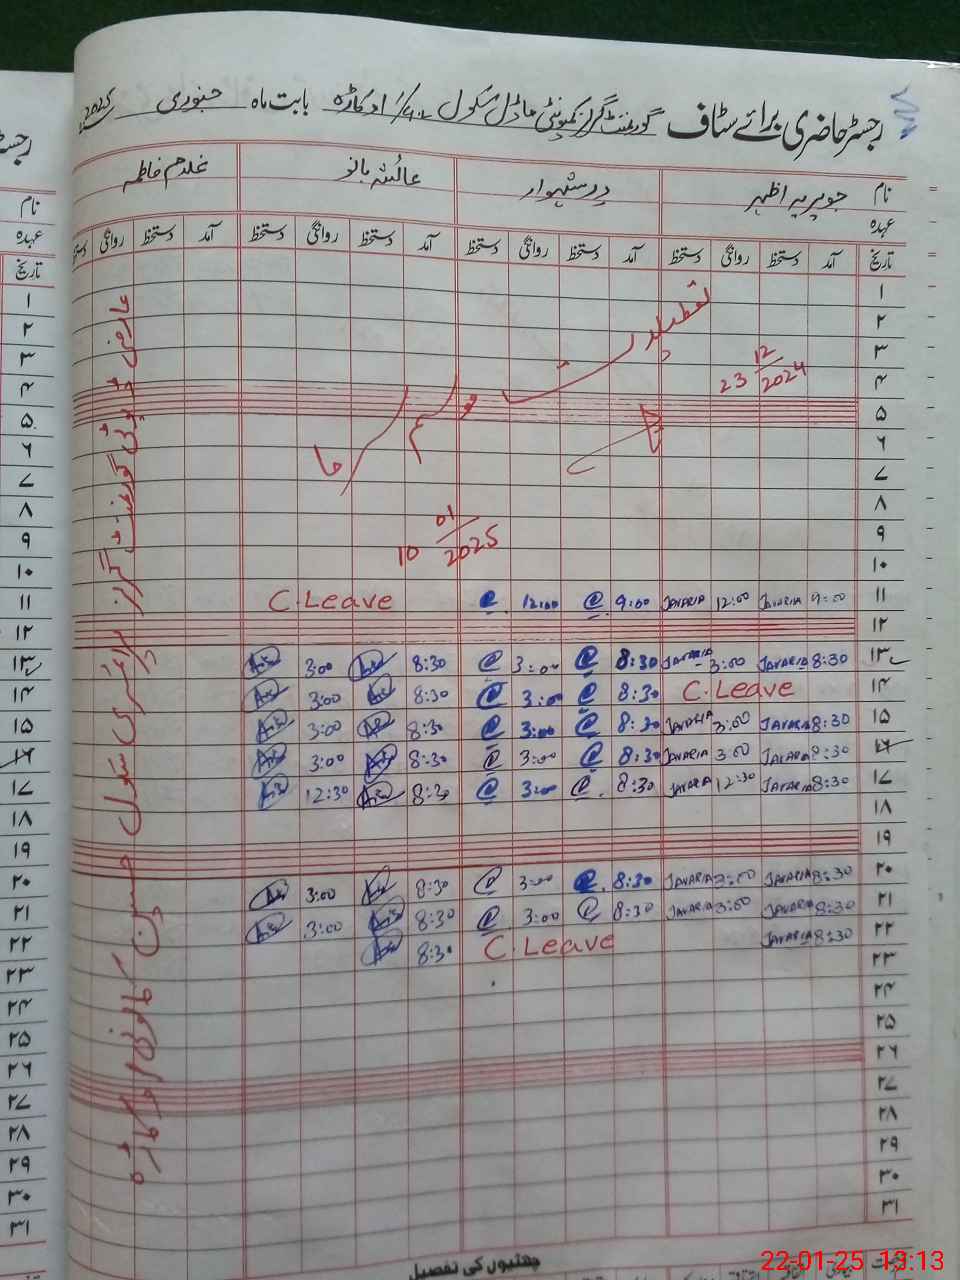 رجسٹر حاضری برائے سٹاف گورنمنٹ گرلز کمیونٹی ماڈل سکول اوکاڑہ بابت ماہ جنوری 2025
نام جویریہ اظہر درشہوار عائشہ بانو غلام فاطمہ
عہدہ
تاریخ آمد دستخط روانگی دستخط آمد دستخط روانگی دستخط آمد دستخط روانگی دستخط آمد دستخط روانگی
۱
۲
۳
۴
۵
۶
۷
۸
۹
۱۰
تعطیلات موسم سرما
23 12/2024
10 01/2025
۱۱ 9:00 JAVARIA 12:00 JAVARIA 9:00 12:00 C.Leave
۱۲
۱۳ 8:30 JAVARIA 3:00 JAVARIA 8:30 3:00 8:30 3:00
۱۴ C.Leave 8:30 3:00 8:30 3:00
۱۵ 8:30 JAVARIA 3:00 JAVARIA 8:30 3:00 8:30 3:00
۱۶ 8:30 JAVARIA 3:00 JAVARIA 8:30 3:00 8:30 3:00
۱۷ 8:30 JAVARIA 12:30 JAVARIA 8:30 3:00 8:30 12:30
۱۸
۱۹
۲۰ 8:30 JAVARIA 3:00 JAVARIA 8:30 3:00 8:30 3:00
۲۱ 8:30 JAVARIA 3:00 JAVARIA 8:30 3:00 8:30 3:00
۲۲ 8:30 JAVARIA C.Leave 8:30
۲۳
۲۴
۲۵
۲۶
۲۷
۲۸
۲۹
۳۰
۳۱
عارضی ڈیوٹی گورنمنٹ گرلز پرائمری سکول
چھٹیوں کی تفصیل
نام
عہدہ
تاریخ
۱
۲
۳
۴
۵
۶
۷
۸
۹
۱۰
۱۱
۱۲
۱۳
۱۴
۱۵
۱۶
۱۷
۱۸
۱۹
۲۰
۲۱
۲۲
۲۳
۲۴
۲۵
۲۶
۲۷
۲۸
۲۹
۳۰
۳۱
22-01-25 13:13